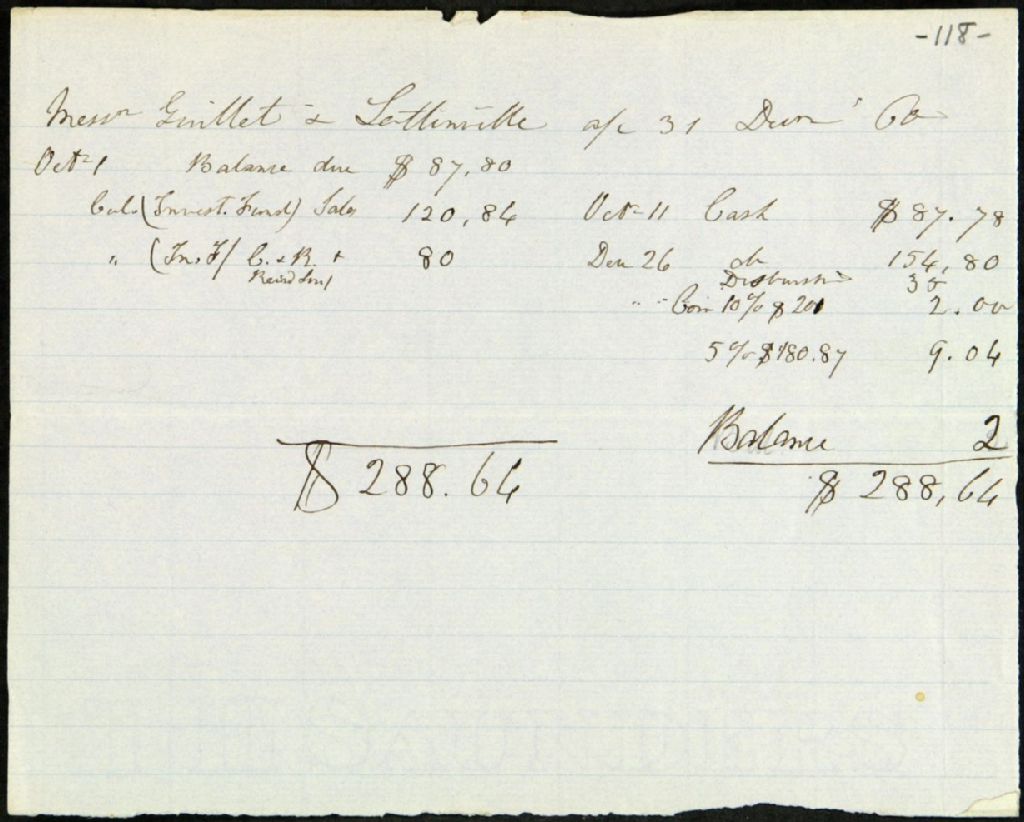 -118-
Messrs Guillet & Lottinville a/c 31 Decr 60
Oct 1 Balance due $ 87,80
Cul. (Invest. Fund) Sales 120,84 Oct 11 Cash $ 87.78
" (In. F) C. & R. + 80 Dec 26 do 154,80
Disbursd 35
" " Com 10% $ 20 2.00
5% $180.87 9.04
Balance 2
$ 288.64 $ 288,64